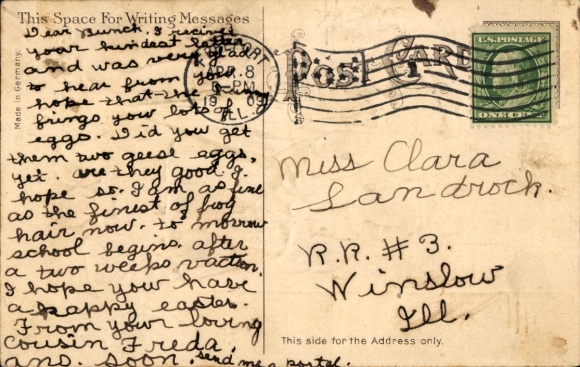 This Space For Writing Messages
Dear Bunch. I recived
your kindest letter
and was very glad
to hear from you. I
hope that the bunny
brings you lots of
eggs. Did you get
them two geese eggs,
yet. are they good I.
hope so. I am as fine
as the finest of frog
hair now. to morrow
school begins after
a two weeks vaction.
I hope you have
a happy easter.
From your loving
Cousin Freda.
ans. soon. send me a postal.
Made in Germany.
FREEPORT
APR. 8
PM
1909
ILL.
POST CARD
U.S. POSTAGE
ONE CENT
Miss Clara
Landrock.
R.R. # 3.
Winslow
Ill.
This side for the Address only.